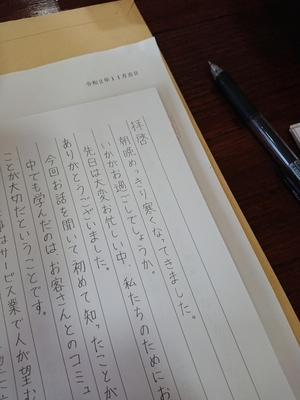 令和2年11月吉日
拝啓
朝晩めっきり寒くなってきました。
いかがお過ごしでしょうか。
先日は大変お忙しい中、私たちのためにお
ありがとうございました。
今回お話を聞いて初めて知ったことが
中でも学んだのは お客さんとのコミュ
ことが大切だということです。
サービス業で人が望む